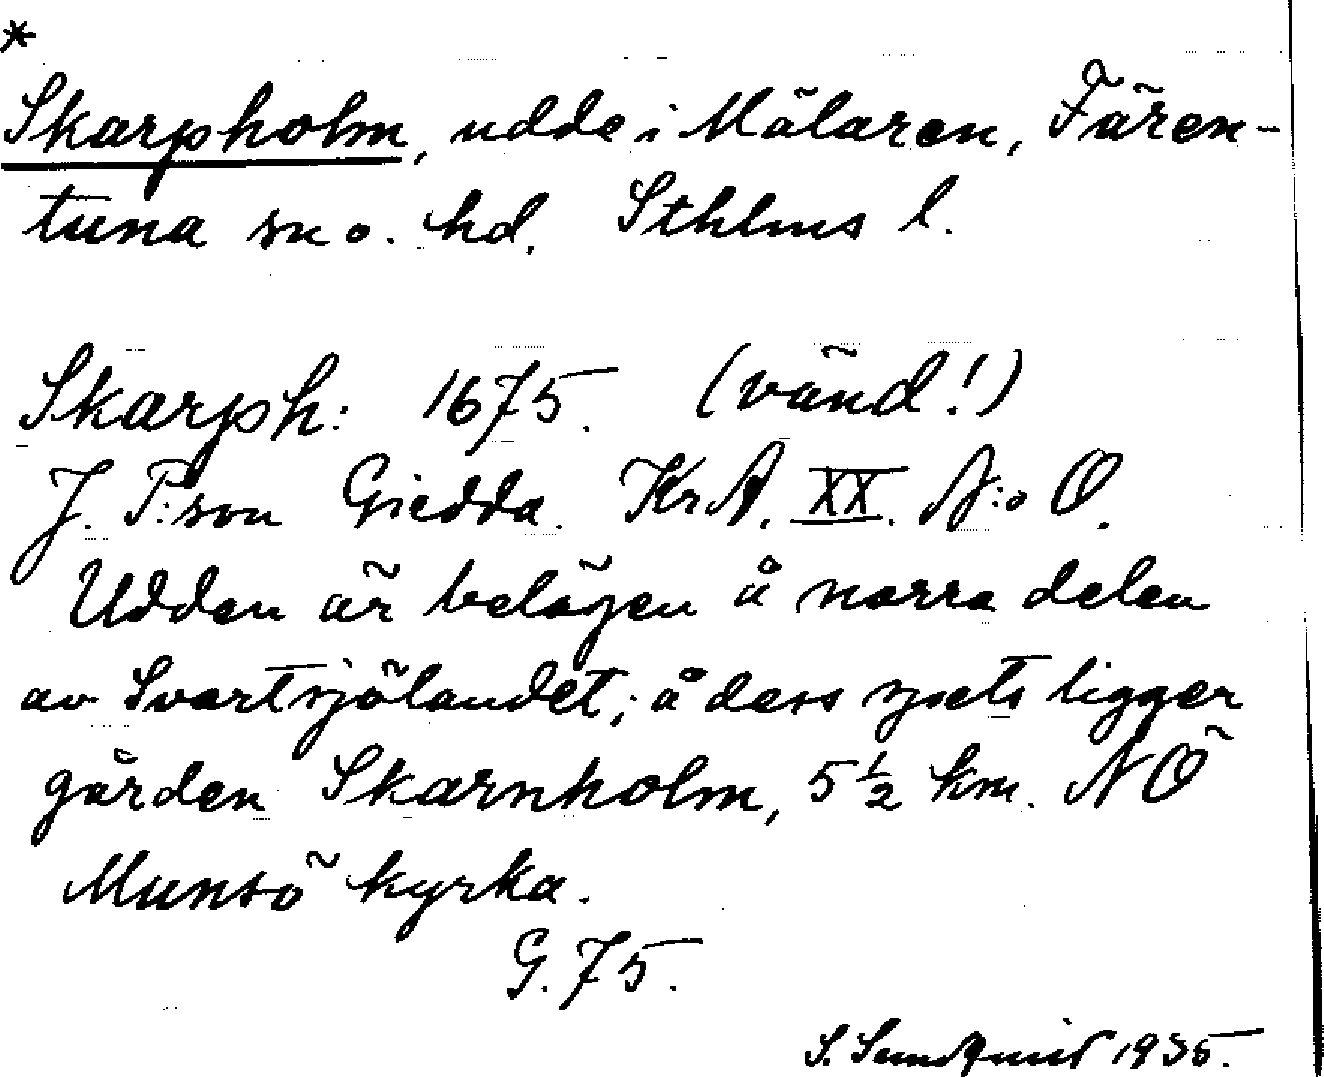 *
Skarpholm, udde i Mälaren, Fären-
tuna sn o. hd. Sthlms l.
Skarph: 1675. (vänd!)
J. P:son Giedda. KrA. XX. N:o O.
Udden är belägen å norra delen
av Svartsjölandet; å dess spets ligger
gården Skarnholm, 5 1/2 km. NÖ
Munsö kyrka.
G. 75.
S. Sundquist 1935.